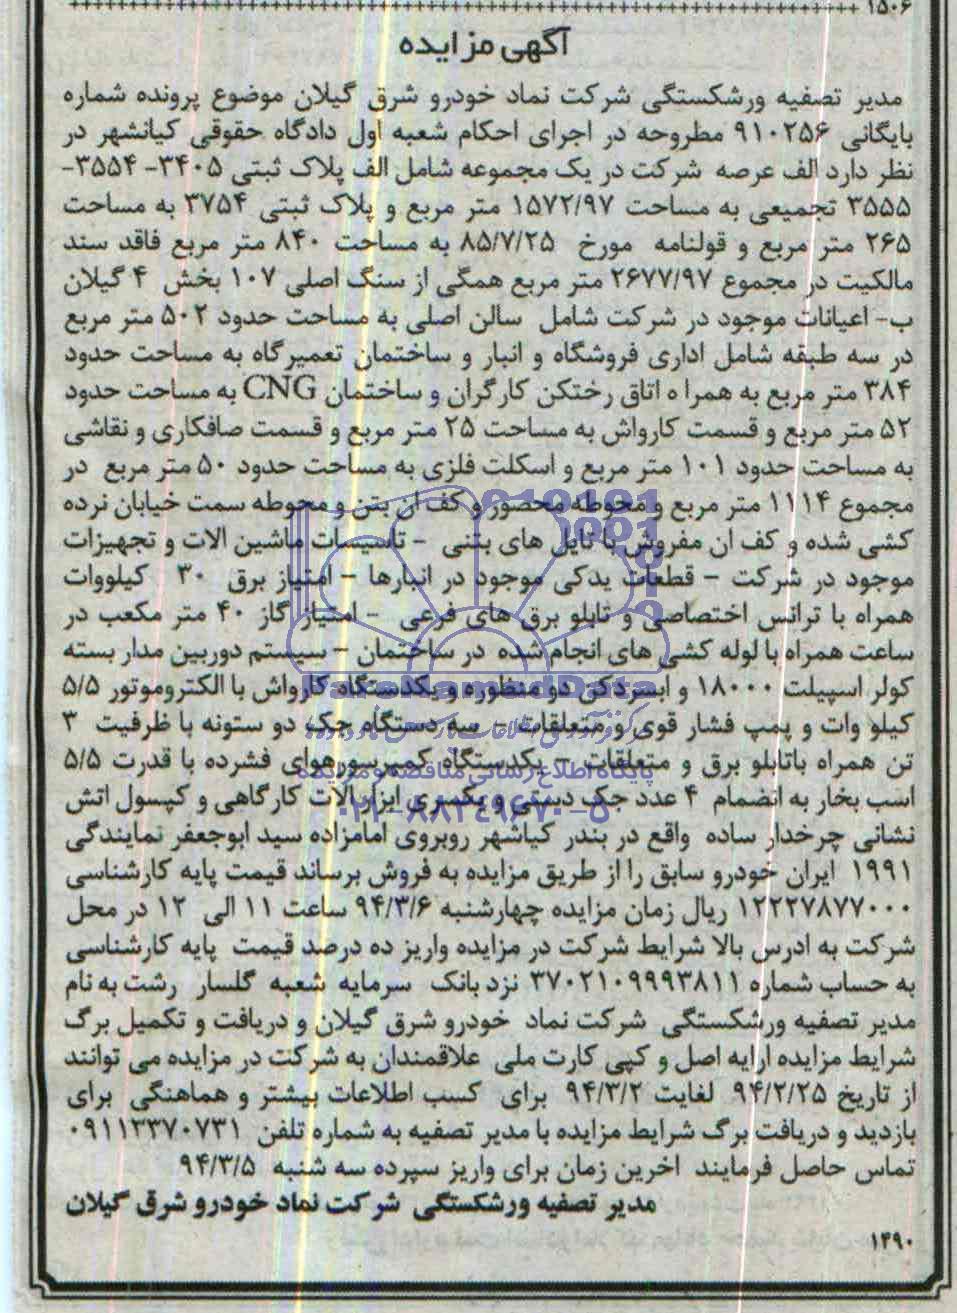 ۱۵۰۶
آگهی مزایده
مدیر تصفیه ورشکستگی شرکت نماد خودرو شرق گیلان موضوع پرونده شماره
بایگانی ۹۱۰۲۵۶ مطروحه در اجرای احکام شعبه اول دادگاه حقوقی کیانشهر در
نظر دارد الف عرصه شرکت در یک مجموعه شامل الف پلاک ثبتی ۳۴۰۵- ۳۵۵۴-
۳۵۵۵ تجمیعی به مساحت ۱۵۷۲/۹۷ متر مربع و پلاک ثبتی ۳۷۵۴ به مساحت
۲۶۵ متر مربع و قولنامه مورخ ۸۵/۷/۲۵ به مساحت ۸۴۰ متر مربع فاقد سند
مالکیت در مجموع ۲۶۷۷/۹۷ متر مربع همگی از سنگ اصلی ۱۰۷ بخش ۴ گیلان
ب- اعیانات موجود در شرکت شامل سالن اصلی به مساحت حدود ۵۰۲ متر مربع
در سه طبقه شامل اداری فروشگاه و انبار و ساختمان تعمیرگاه به مساحت حدود
۳۸۴ متر مربع به همرا ه اتاق رختکن کارگران و ساختمان CNG به مساحت حدود
۵۲ متر مربع و قسمت کارواش به مساحت ۲۵ متر مربع و قسمت صافکاری و نقاشی
به مساحت حدود ۱۰۱ متر مربع و اسکلت فلزی به مساحت حدود ۵۰ متر مربع در
مجموع ۱۱۱۴ متر مربع و محوطه محصور و کف ان بتن و محوطه سمت خیابان نرده
کشی شده و کف ان مفروش با تایل های بتنی - تاسیسات ماشین الات و تجهیزات
موجود در شرکت - قطعات یدکی موجود در انبارها - امتیاز برق ۳۰ کیلووات
همراه با ترانس اختصاصی و تابلو برق های فرعی - امتیاز گاز ۴۰ متر مکعب در
ساعت همراه با لوله کشی های انجام شده در ساختمان - سیستم دوربین مدار بسته
کولر اسپیلت ۱۸۰۰۰ و ابسردکن دو منظوره و یکدستگاه کارواش با الکتروموتور ۵/۵
کیلو وات و پمپ فشار قوی و متعلقات - سه دستگاه جک دو ستونه با ظرفیت ۳
تن همراه باتابلو برق و متعلقات - یکدستگاه کمپرسورهوای فشرده با قدرت ۵/۵
اسب بخار به انضمام ۴ عدد جک دستی و یکسری ابزار الات کارگاهی و کپسول اتش
نشانی چرخدار ساده واقع در بندر کیاشهر روبروی امامزاده سید ابوجعفر نمایندگی
۱۹۹۱ ایران خودرو سابق را از طریق مزایده به فروش برساند قیمت پایه کارشناسی
۱۲۲۲۷۸۷۷۰۰۰ ریال زمان مزایده چهارشنبه ۹۴/۳/۶ ساعت ۱۱ الی ۱۲ در محل
شرکت به ادرس بالا شرایط شرکت در مزایده واریز ده درصد قیمت پایه کارشناسی
به حساب شماره ۳۷۰۲۱۰۹۹۹۳۸۱۱ نزد بانک سرمایه شعبه گلسار رشت به نام
مدیر تصفیه ورشکستگی شرکت نماد خودرو شرق گیلان و دریافت و تکمیل برگ
شرایط مزایده ارایه اصل و کپی کارت ملی علاقمندان به شرکت در مزایده می توانند
از تاریخ ۹۴/۲/۲۵ لغایت ۹۴/۳/۲ برای کسب اطلاعات بیشتر و هماهنگی برای
بازدید و دریافت برگ شرایط مزایده با مدیر تصفیه به شماره تلفن ۰۹۱۱۲۳۷۰۷۳۱
تماس حاصل فرمایند اخرین زمان برای واریز سپرده سه شنبه ۹۴/۳/۵
مدیر تصفیه ورشکستگی شرکت نماد خودرو شرق گیلان
۱۴۹۰
پایگاه اطلاع رسانی مناقصه و مزایده
۰۲۱-۸۸۳۴۹۶۷۰-۵